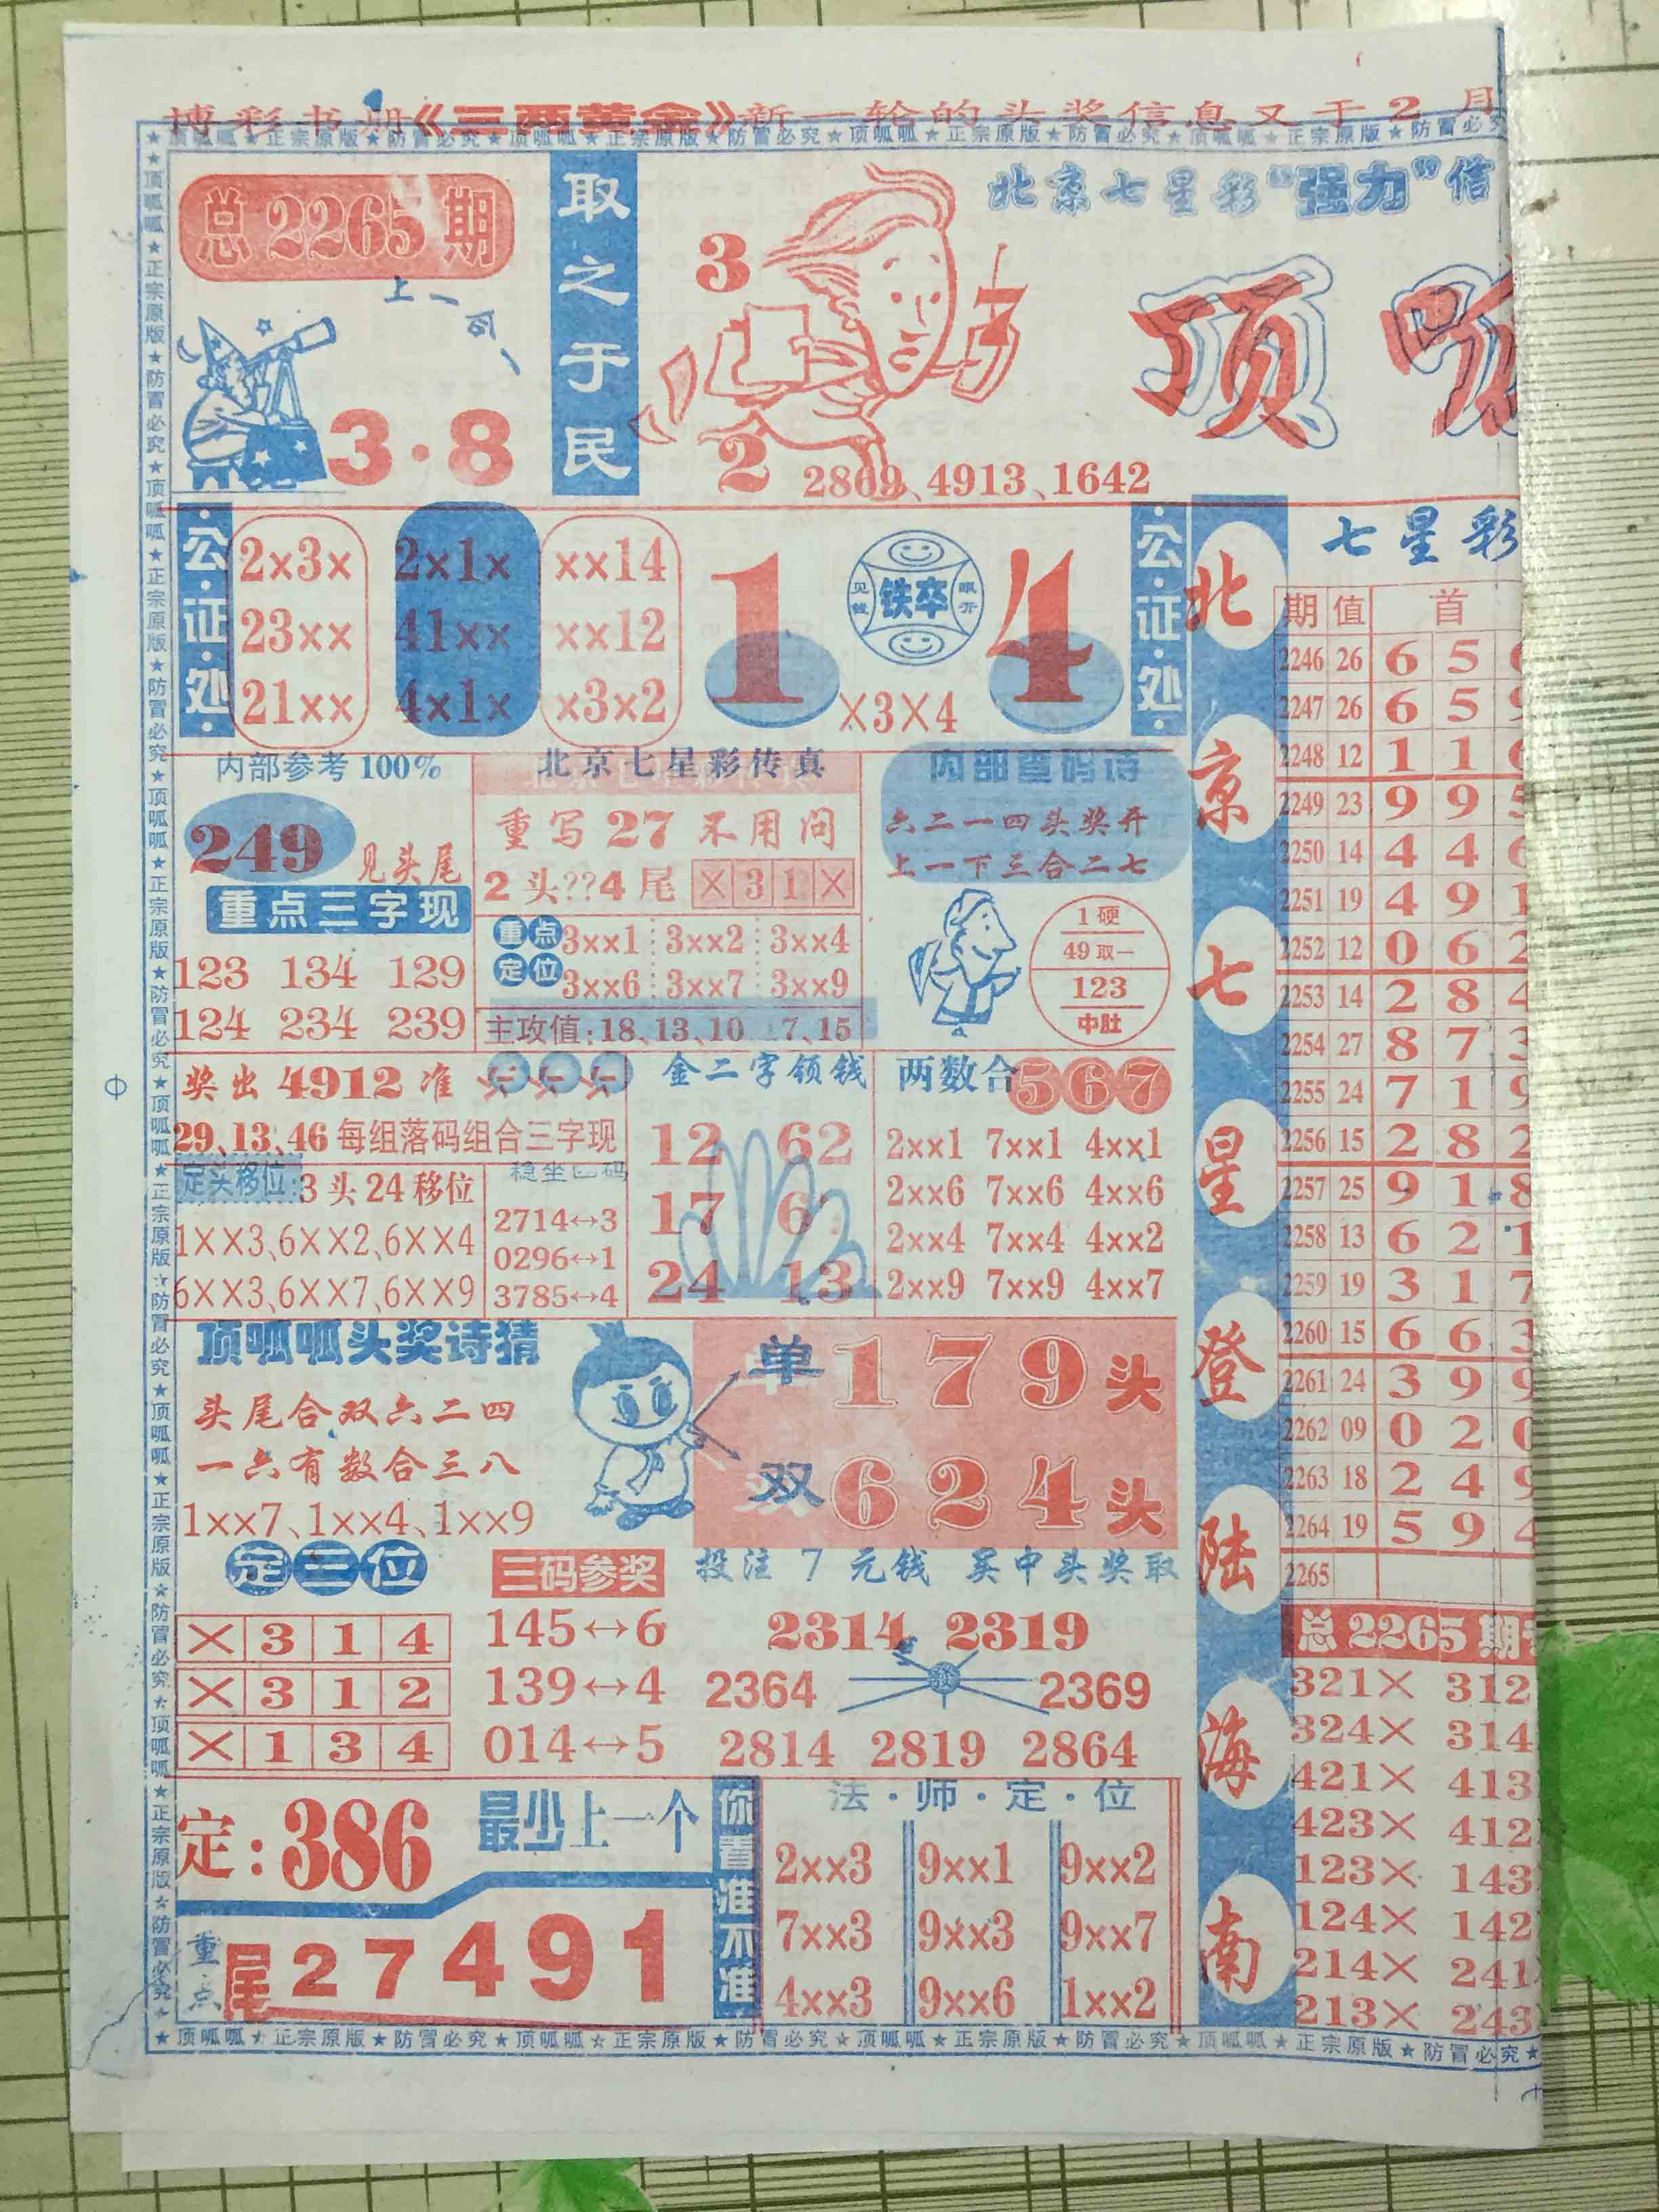 博彩书册《三两黄金》新一轮的头奖信息又于2月
★顶呱呱★正宗原版★防冒必究★顶呱呱★正宗原版★防冒必究★顶呱呱★正宗原版★防冒必究★顶呱呱★正宗原版★防冒必究
总2265期
上一个
3·8
取之于民
3
7
2
2869、4913、1642
北京七星彩“强力”信
顶呱
公·证·处
2×3× 2×1× ××14
23×× 41×× ××12
21×× 4×1× ×3×2
1 4
见钱 铁卒 眼开
×3×4
公·证·处
内部参考100%
249 见头尾
重点三字现
123 134 129
124 234 239
北京七星彩传真
重写27不用问
2头??4尾 ×31×
重点定位
3××1 3××2 3××4
3××6 3××7 3××9
主攻值:18、13、10、17、15
内部查码诗
六二一四头奖开
上一下三合二七
1硬
49取一
123
中肚
奖出4912准
29、13、46每组落码组合三字现
定头移位:3头24移位
1××3、6××2、6××4
6××3、6××7、6××9
稳坐四码
2714↔3
0296↔1
3785↔4
金二字领钱
12 62
17
24 13
两数合567
2××1 7××1 4××1
2××6 7××6 4××6
2××4 7××4 4××2
2××9 7××9 4××7
顶呱呱头奖诗猜
头尾合双六二四
一六有数合三八
1××7、1××4、1××9
单179头
双624头
定三位
×314
×312
×134
三码参奖
145↔6
139↔4
014↔5
投注7元钱 买中头奖取
2314 2319
2364 發 2369
2814 2819 2864
定:386 最少上一个
重点尾27491
你看准不准
法·师·定·位
2××3 9××1 9××2
7××3 9××3 9××7
4××3 9××6 1××2
北京七星登陆海南
七星彩
期 值 首
2246 26 6 5
2247 26 6 5
2248 12 1 1
2249 23 9 9
2250 14 4 4
2251 19 4 9
2252 12 0 6
2253 14 2 8
2254 27 8 7
2255 24 7 1
2256 15 2 8
2257 25 9 1
2258 13 6 2
2259 19 3 1
2260 15 6 6
2261 24 3 9
2262 09 0 2
2263 18 2 4
2264 19 5 9
2265
总2265期
321× 312
324× 314
421× 413
423× 412
123× 143
124× 142
214× 241
213× 243
★顶呱呱★正宗原版★防冒必究★顶呱呱★正宗原版★防冒必究★顶呱呱★正宗原版★防冒必究★顶呱呱★正宗原版★防冒必究★